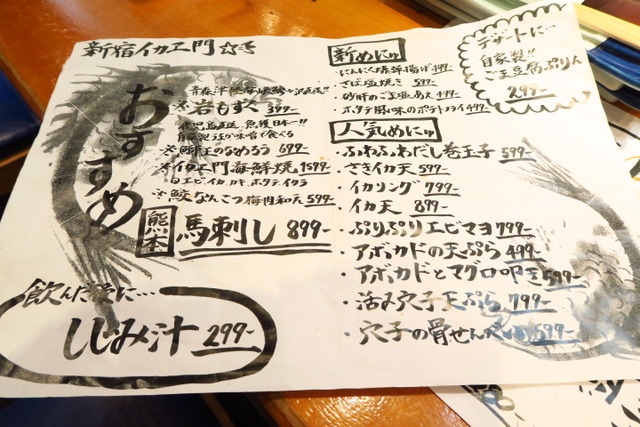 新宿イカエ門
おすすめ
※岩もずく 399-
鹿児島直送 漁獲日本一!!
※鰤王のなめろう 699-
※イカエ門海鮮焼 1599-
白エビ、イカ、カキ、ホタテ、イクラ
※鮫なんこつ梅肉和え 599-
熊本 馬刺し 899-
飲んだ後に…
しじみ汁 299-
新めにゅ
・にんにく爆弾揚げ 499-
・さば塩焼き 599-
・砂肝のごま塩あえ 499-
・ホタテ風味のポテトフライ 499-
人気めにゅ
・ふわふわだし巻玉子 599-
・さきイカ天 599-
・イカリング 799-
・イカ天 899-
・ぷりぷりエビマヨ 799-
・アボカドの天ぷら 499-
・アボカドとマグロ叩き 599-
・活み穴子天ぷら 799-
・穴子の骨せんべい 599-
デザートに…
自家製!!
ごま豆腐ぷりん
299-